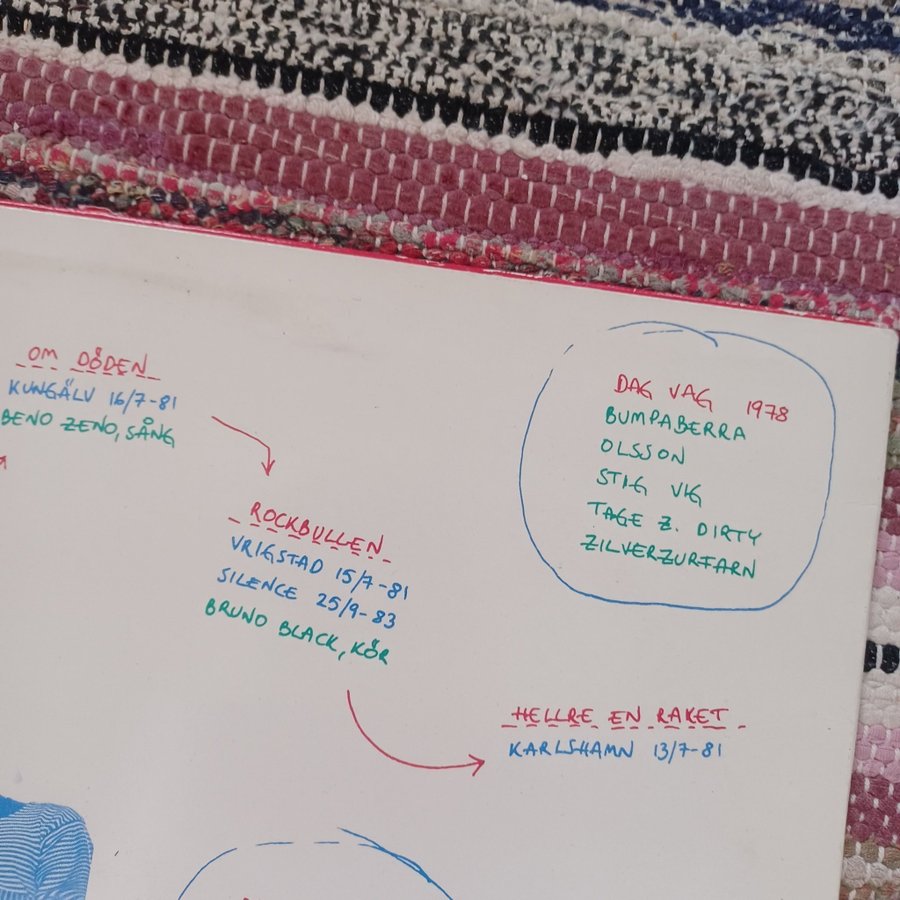 OM DÖDEN
KUNGÄLV 16/7-81
BENO ZENO, SÅNG
ROCKBULLEN
VRIGSTAD 15/7-81
SILENCE 25/9-83
BRUNO BLACK, KÖR
HELLRE EN RAKET
KARLSHAMN 13/7-81
DAG VAG 1978
BUMPABERRA
OLSSON
STIG VIG
TAGE Z. DIRTY
ZILVERZURFARN